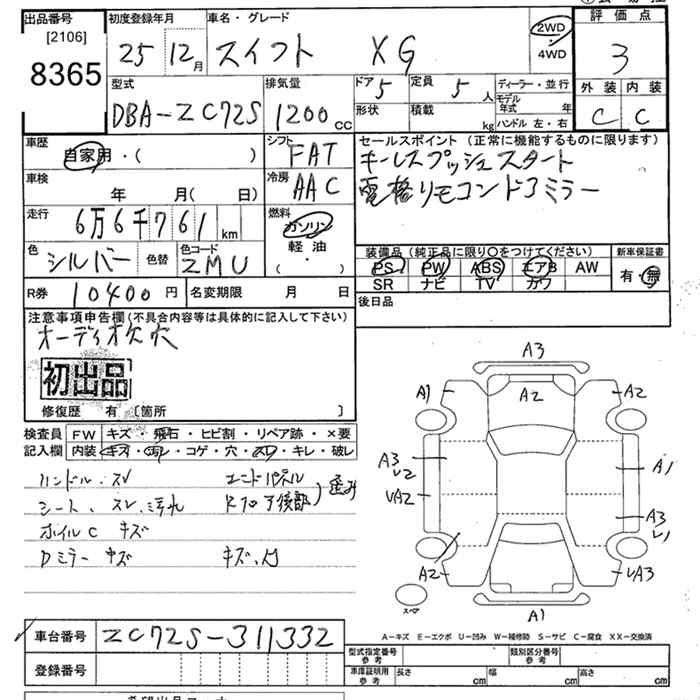 出品番号 初度登録年月 車名・グレード 評価点
[2106] 2WD
8365 25 12月 スイフト XG ・ 3
4WD
型式 排気量 ドア 定員 ディーラー・並行 外装 内装
DBA-ZC72S 1200cc 5 5人 モデル年式 年 C C
形状 積載 kg ハンドル 左・右
車歴 シフト セールスポイント(正常に機能するものに限ります)
自家用・( ) FAT キーレスプッシュスタート
車検 冷房 電格リモコンドアミラー
年 月( 日) AAC
走行 燃料
6万6千761km ガソリン
色 色替 色コード 軽・油 装備品(純正品に限り○をつけてください) 新車保証書
シルバー ZMU ( ・ ) PS PW ABS エアB AW 有・無
SR ナビ TV カワ
R券 10400円 名変期限 月 日 後日品
注意事項申告欄(不具合内容等は具体的に記入して下さい)
オーディオ欠穴
初出品
修復歴 有 〔箇所 〕
検査員 FW キズ・飛石・ヒビ割・リペア跡・×要
記入欄 内装 キズ・汚れ・コゲ・穴・スレ・キレ・破レ
ハンドル.スレ エンドパネル
シート.スレ.汚れ Rフロア後部 歪み
ホイルC キズ
Dミラー キズ キズ.
A3
A1 A2 A2
A3 A1
UA2
A3
A2 UA3
スペア A1
A-キズ E-エクボ U-凹み W-補修跡 S-サビ C-腐食 XX-交換済
車台番号 ZC72S-311332
型式指定番号 参考 類別区分番号 参考
登録番号 車庫証明用 参考 長さ cm 幅 cm 高さ cm